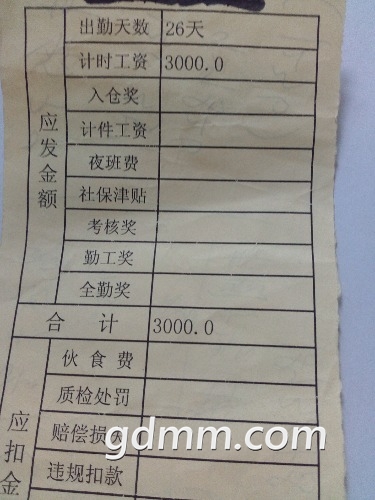 出勤天数 26天
计时工资 3000.0
入仓奖
计件工资
夜班费
社保津贴
考核奖
勤工奖
全勤奖
应发金额
合 计 3000.0
伙食费
质检处罚
赔偿损失
违规扣款
应扣金
gdmm.com